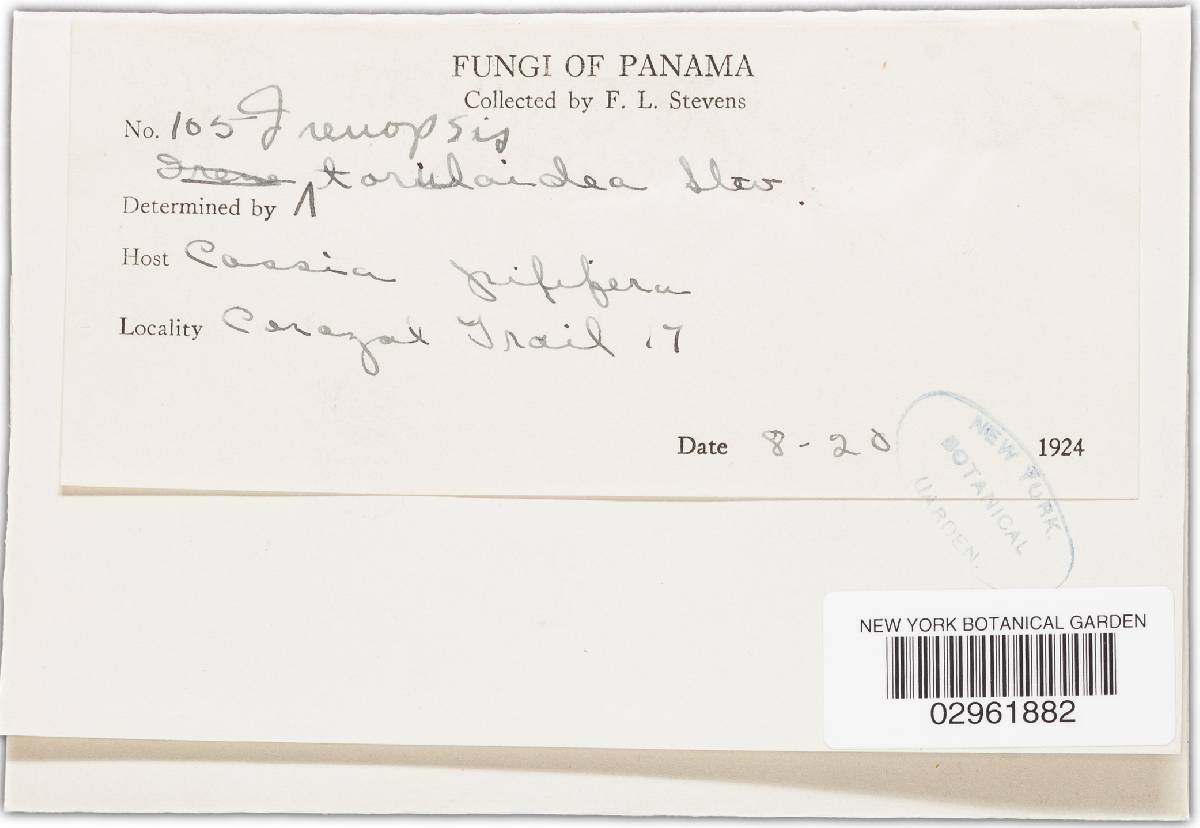 FUNGI OF PANAMA
Collected by F. L. Stevens
No. 105 Irenopsis
Irene toruloidea Stev.
Determined by
Host Cassia pififera
Locality Corozal Trail 17
Date 8-20 1924
NEW YORK
BOTANICAL
GARDEN.
NEW YORK BOTANICAL GARDEN
02961882